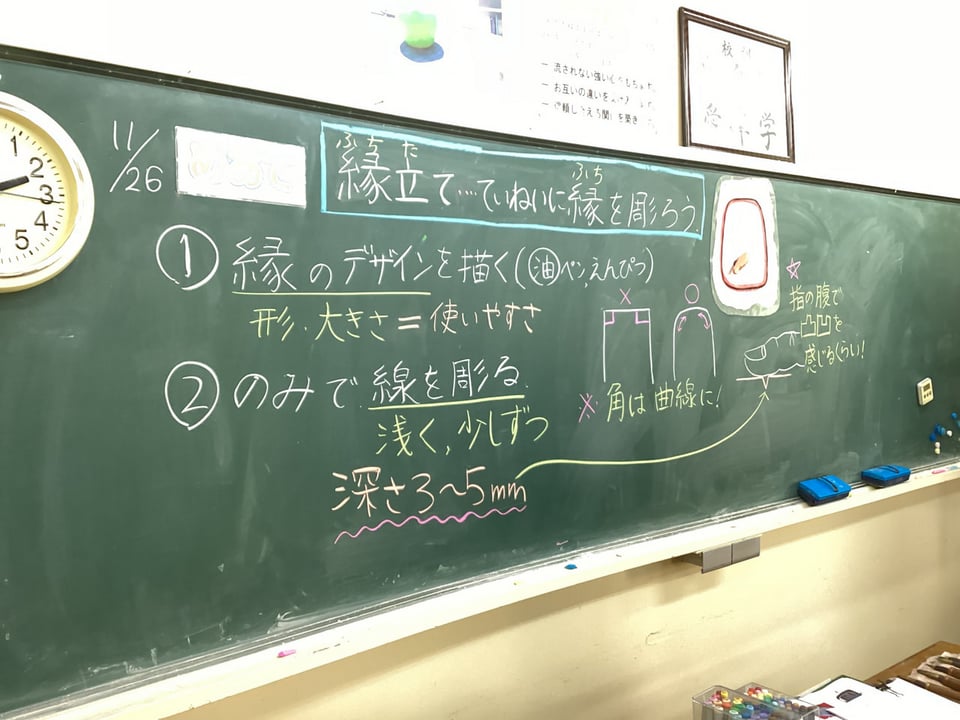 一 流されない強い
一 お互いの違いを
校
学
11/26
ふち た
縁立て…ていねいに縁を彫ろう。
ふち
① 縁のデザインを描く(油ペン,えんぴつ)
形・大きさ=使いやすさ
② のみで線を彫る.
浅く,少しずつ
深さ3~5mm
×
○
※角は曲線に!
☆
指の腹で
凸凹を
感じるくらい!
1
2
3
4
5